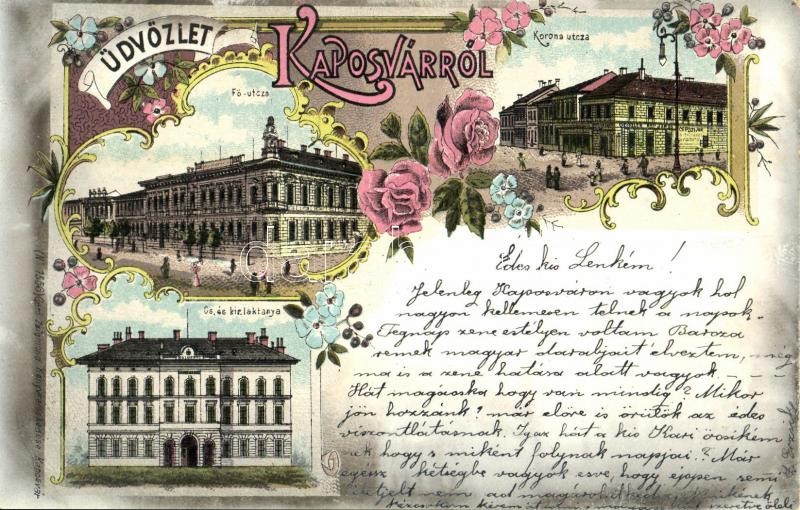 ÜDVÖZLET
KAPOSVÁRRÓL
Korona utcza
Fő-utcza
Cs. és kir. laktanya
Édes kis Lenkém!
Jelenleg Kaposváron vagyok hol
nagyon kellemesen telnek a napok.
Tegnap zene estélyen voltam Barcza
remek magyar darabjait élveztem, még
ma is a zene hatása alatt vagyok. - - -
Hát magácska hogy van mindig? Mikor
jön hozzánk? már előre is örülök az édes
viszontlátásnak. Igaz hát a kis Kari öcsikém
hogy s miként folynak napjai? Már
egész kétségbe vagyok esve, hogy éppen semi
nem ad magáról